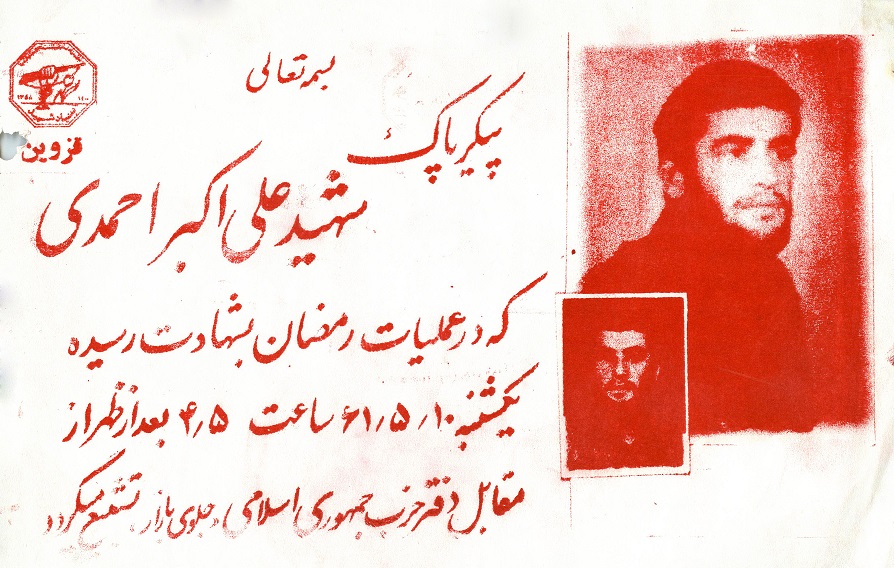 بسمه تعالی
پیکر پاک
شهید علی اکبر احمدی
که در عملیات رمضان بشهادت رسیده
یکشنبه ۱۰/۵/۶۱ ساعت ۴/۵ بعد از ظهر از
مقابل دفتر حزب جمهوری اسلامی، جلوی بازار تشییع میگردد
بنیاد شهید
۱۳۵۸
قزوین